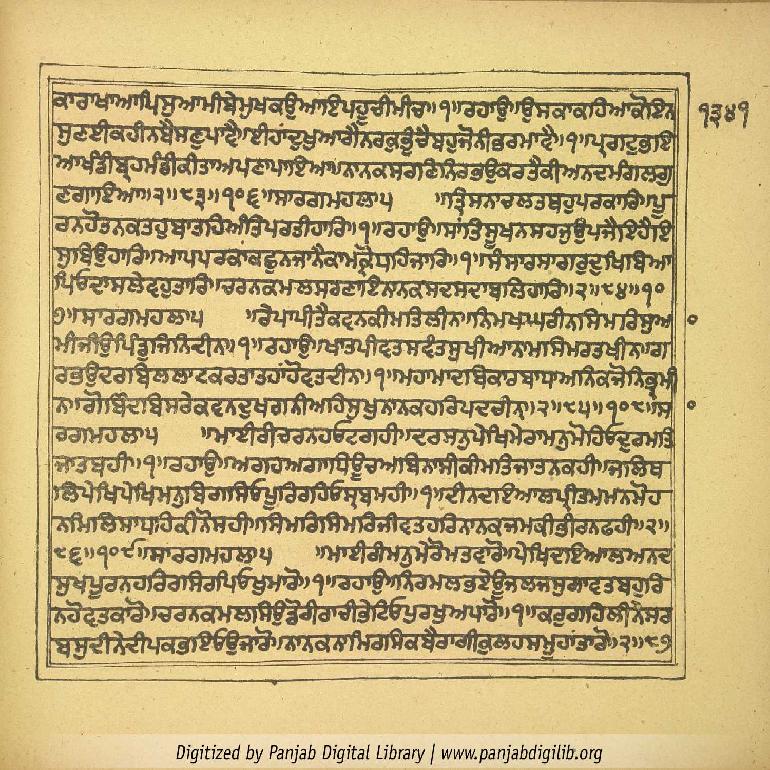 ਕਾਰਾਖਾਆਪਿਸੁਆਮੀਬੇਮੁਖਕਉਆਇਪਹੂਚੀਮੀਚ॥੧॥ਰਹਾਉ॥ਉਸਕਾਕਹਿਆਕੋਇਨ
੧੩੪੧
ਸੁਣਈਕਹੀਨਬੈਸਣੁਪਾਵੈ॥ਈਹਾਂਦੁਖੁਆਗੈਨਰਕੁਭੁੰਚੈਬਹੁਜੋਨੀਭਰਮਾਵੈ॥੧॥ਪ੍ਰਗਟੁਭਇ
ਆਖੰਡੀਬ੍ਰਹਮੰਡੀਕੀਤਾਅਪਣਾਪਾਇਆ॥ਨਾਨਕਸਰਣਿਨਿਰਭਉਕਰਤੇਕੀਅਨਦਮੰਗਲਗੁ
ਣਗਾਇਆ॥੨॥੮੩॥੧੦੬॥ਸਾਰਗਮਹਲਾ੫ ॥ਤ੍ਰਿਸਨਾਚਲਤਬਹੁਪਰਕਾਰਿ॥ਪੂ
ਰਨਹੋਤਨਕਤਹੁਬਾਤਹਿਅੰਤਿਪਰਤੀਹਾਰਿ॥੧॥ਰਹਾਉ॥ਸਾਂਤਿਸੂਖਨਸਹਜੁਉਪਜੈਇਹੈਇ
ਸੁਬਿਉਹਾਰਿ॥ਆਪਪਰਕਾਕਛੁਨਜਾਨੈਕਾਮਕ੍ਰੋਧਹਿਜਾਰਿ॥੧॥ਸੰਸਾਰਸਾਗਰੁਦੁਖਿਬਿਆ
ਪਿਓਦਾਸਲੇਵਹੁਤਾਰਿ॥ਚਰਨਕਮਲਸਰਣਾਇਨਾਨਕਸਦਸਦਾਬਲਿਹਾਰਿ॥੨॥੮੪॥੧੦
੭॥ਸਾਰਗਮਹਲਾ੫ ॥ਰੇਪਾਪੀਤੈਕਵਨਕੀਮਤਿਲੀਨ॥ਨਿਮਖਘਰੀਨਸਿਮਰਿਸੁਆ
ਮੀਜੀਉਪਿੰਡੁਜਿਨਿਦੀਨ॥੧॥ਰਹਾਉ॥ਖਾਤਪੀਵਤਸਵੰਤਸੁਖੀਆਨਾਮੁਸਿਮਰਤਖੀਨ॥ਗ
ਰਭਉਦਰਬਿਲਲਾਟਕਰਤਾਤਹਾਂਹੋਵਤਦੀਨ॥੧॥ਮਹਾਮਾਦਬਿਕਾਰਬਾਧਾਅਨਿਕਜੋਨਿਭ੍ਰਮੀ
ਨ॥ਗੋਬਿੰਦਬਿਸਰੇਕਵਨਦੁਖਗਨੀਅਹਿਸੁਖੁਨਾਨਕਹਰਿਪਦਚੀਨ੍ਹ॥੨॥੮੫॥੧੦੮॥ਸਾ
ਰਗਮਹਲਾ੫ ॥ਮਾਈਰੀਚਰਨਹਓਟਗਹੀ॥ਦਰਸਨੁਪੇਖਿਮੇਰਾਮਨੁਮੋਹਿਓਦੁਰਮਤਿ
ਜਾਤਬਹੀ॥੧॥ਰਹਾਉ॥ਅਗਹਅਗਾਧਿਊਚਅਬਿਨਾਸੀਕੀਮਤਿਜਾਤਨਕਹੀ॥ਜਲਿਥ
ਲਿਪੇਖਿਪੇਖਿਮਨੁਬਿਗਸਿਓਪੂਰਿਰਹਿਓਸ੍ਰਬਮਹੀ॥੧॥ਦੀਨਦਇਆਲਪ੍ਰੀਤਮਮਨਮੋਹ
ਨਮਿਲਿਸਾਧਹਿਕੀਨੋਸਹੀ॥ਸਿਮਰਿਸਿਮਰਿਜੀਵਤਹਰਿਨਾਨਕਜਮਕੀਭੀਰਨਫਹੀ॥੨॥
੮੬॥੧੦੯॥ਸਾਰਗਮਹਲਾ੫ ॥ਮਾਈਰੀਮਨੁਮੇਰੋਮਤਵਾਰੋ॥ਪੇਖਿਦਇਆਲਅਨਦ
ਸੁਖਪੂਰਨਹਰਿਰਸਿਰਪਿਓਖੁਮਾਰੋ॥੧॥ਰਹਾਉ॥ਨਿਰਮਲਭਇਓਊਜਲਜਸੁਗਾਵਤਬਹੁਰਿ
ਨਹੋਵਤਕਾਰੋ॥ਚਰਨਕਮਲਸਿਉਡੋਰੀਰਾਚੀਭੇਟਿਓਪੁਰਖੁਅਪਾਰੋ॥੧॥ਕਰੁਗਹਿਲੀਨੇਸਰ
ਬਸੁਦੀਨੇਦੀਪਕਭਇਓਉਜਾਰੋ॥ਨਾਨਕਨਾਮਿਰਸਿਕਬੈਰਾਗੀਕੁਲਹਸਮੂਹਾਂਤਾਰੋ॥੨॥੮੭
Digitized by Panjab Digital Library | www.panjabdigilib.org